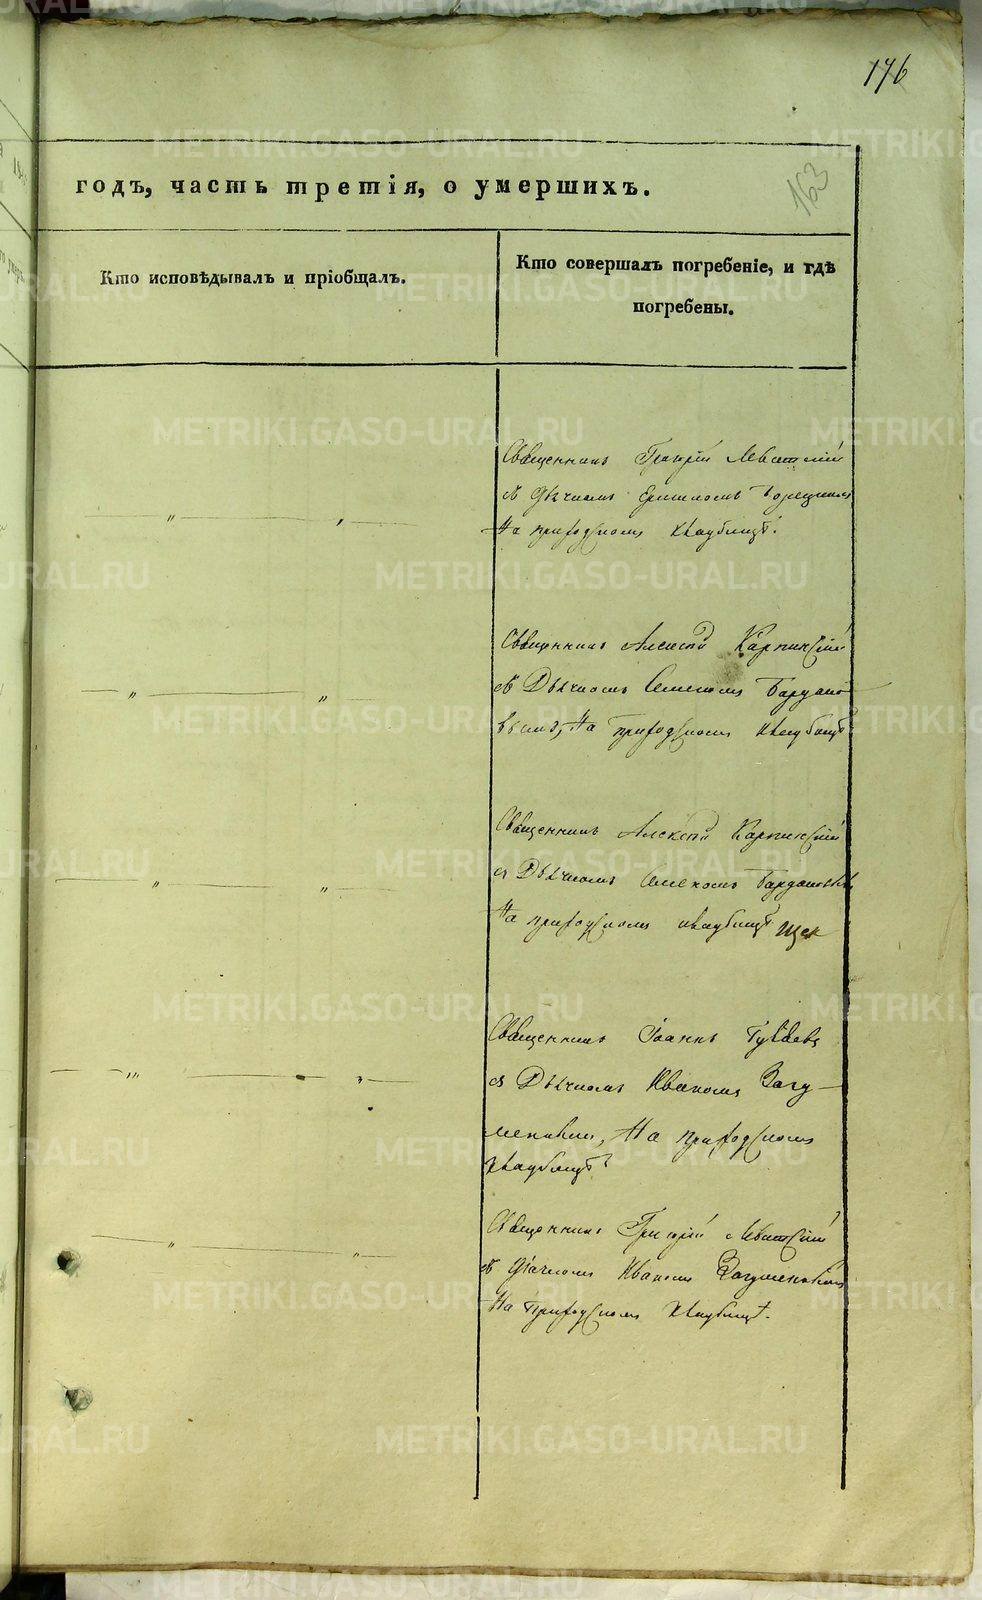 176
163
годъ, часть третія, о умершихъ.
Кто исповѣдывалъ и пріобщалъ.
Кто совершалъ погребеніе, и гдѣ
погребены.
Священникъ Григорій Левитскій
съ Дьячкомъ
На приходскомъ кладбищѣ.
Священникъ Алексѣй Карпинскій
съ Дьячкомъ Семеномъ Бардако
вымъ, На приходскомъ кладбищѣ
Священникъ Алексѣй Карпинскій
съ Дьячкомъ Семеномъ
На приходскомъ кладбищѣ
Священникъ Іоаннъ
съ Дьячкомъ Иваномъ Загу-
менымъ, На приходскомъ
кладбищѣ
Священникъ Григорій Левитскій
съ Дьячкомъ Иваномъ
На приходскомъ кладбищѣ.
METRIKI.GASO-URAL.RU